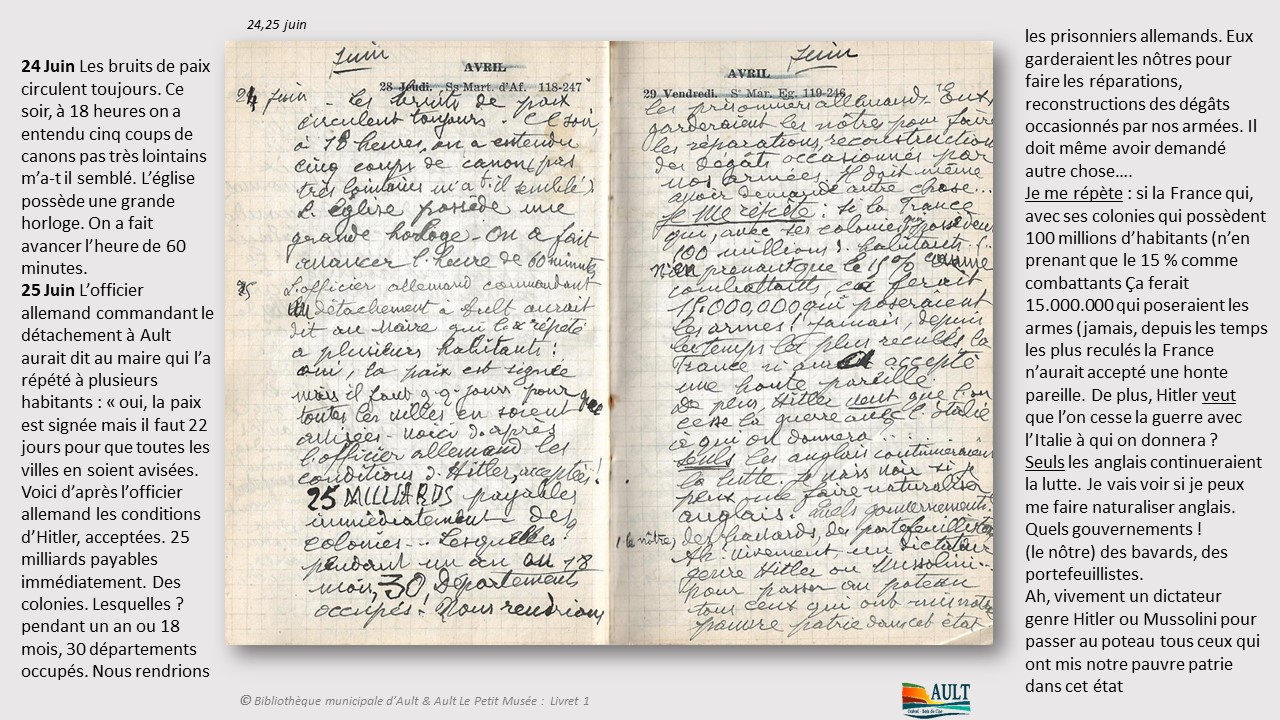 24,25 juin
24 Juin Les bruits de paix
circulent toujours. Ce
soir, à 18 heures on a
entendu cinq coups de
canons pas très lointains
m’a-t il semblé. L’église
possède une grande
horloge. On a fait
avancer l’heure de 60
minutes.
25 Juin L’officier
allemand commandant le
détachement à Ault
aurait dit au maire qui l’a
répété à plusieurs
habitants : « oui, la paix
est signée mais il faut 22
jours pour que toutes les
villes en soient avisées.
Voici d’après l’officier
allemand les conditions
d’Hitler, acceptées. 25
milliards payables
immédiatement. Des
colonies. Lesquelles ?
pendant un an ou 18
mois, 30 départements
occupés. Nous rendrions
Juin
AVRIL
28 Jeudi. Ss Mart. d'Af. 118-247
24 juin - Les bruits de paix
circulent toujours. Ce soir,
à 18 heures, on a entendu
cinq coups de canon (pas
très lointains m'a t'il semblé)
L'église possède une
grande horloge - On a fait
avancer l'heure de 60 minutes
25 L'officier allemand commandant
détachement à Ault aurait
dit au Maire qui l'a répété
à plusieurs habitants :
oui, la paix est signée
mais il faut q.q. jours pour que
toutes les villes en soient
avisées - Voici d'après
l'officier allemand les
conditions d'Hitler, acceptées !
25 MILLIARDS payables
immédiatement - Des
colonies... Lesquelles ?
pendant un an ou 18
mois, 30 Départements
occupés ! Nous rendrions
Juin
AVRIL
29 Vendredi. Sᵗ Mar. Eg. 119-246
les prisonniers allemands - Eux
garderaient les nôtres pour faire
les réparations, reconstructions
des dégâts occasionnés par
nos armées. Il doit même
avoir demandé autre chose...
Je me répète : si la France
qui, avec ses colonies possèdent
100 millions d'habitants (
n'en prenant que le 15 % comme
combattants ça ferait
15.000,000 qui poseraient
les armes ! Jamais, depuis
les temps les plus reculés la
France n'aura accepté
une honte pareille
De plus, Hitler veut que l'on
cesse la guerre avec l'Italie
à qui on donnera ...
Seuls les anglais continueraient
la lutte. Je vais voir si je
peux me faire naturaliser
anglais. Quels gouvernements !
(le nôtre) des bavards, des portefeuillistes
Ah ! vivement un dictateur
genre Hitler ou Mussolini -
pour passer au poteau
tous ceux qui ont mis notre
pauvre patrie dans cet état
les prisonniers allemands. Eux
garderaient les nôtres pour
faire les réparations,
reconstructions des dégâts
occasionnés par nos armées. Il
doit même avoir demandé
autre chose….
Je me répète : si la France qui,
avec ses colonies qui possèdent
100 millions d’habitants (n’en
prenant que le 15 % comme
combattants Ça ferait
15.000.000 qui poseraient les
armes (jamais, depuis les temps
les plus reculés la France
n’aurait accepté une honte
pareille. De plus, Hitler veut
que l’on cesse la guerre avec
l’Italie à qui on donnera ?
Seuls les anglais continueraient
la lutte. Je vais voir si je peux
me faire naturaliser anglais.
Quels gouvernements !
(le nôtre) des bavards, des
portefeuillistes.
Ah, vivement un dictateur
genre Hitler ou Mussolini pour
passer au poteau tous ceux qui
ont mis notre pauvre patrie
dans cet état
© Bibliothèque municipale d’Ault & Ault Le Petit Musée : Livret 1
AULT